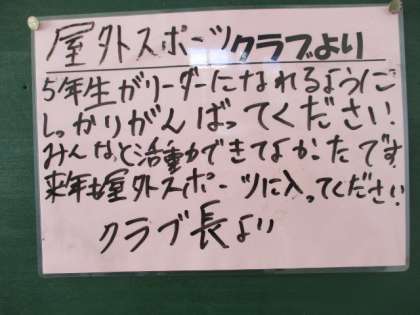 屋外スポーツクラブより
5年生がリーダーになれるように
しっかりがんばってください!
みんなと活動ができてよかたです
来年も屋外スポーツに入ってください
クラブ長より